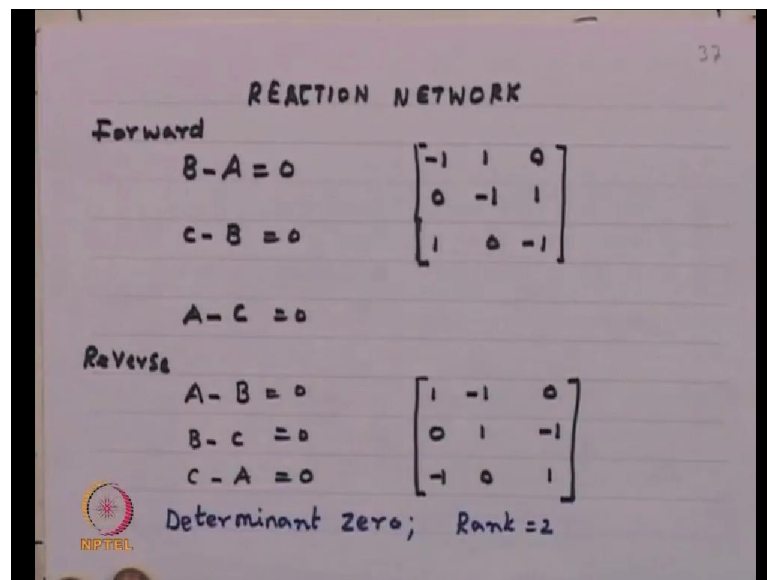 37
REACTION NETWORK
Forward
B - A = 0
-1 1 0
0 -1 1
C - B = 0
1 0 -1
A - C = 0
Reverse
A - B = 0
1 -1 0
B - C = 0
0 1 -1
C - A = 0
-1 0 1
Determinant zero; Rank = 2
NPTEL